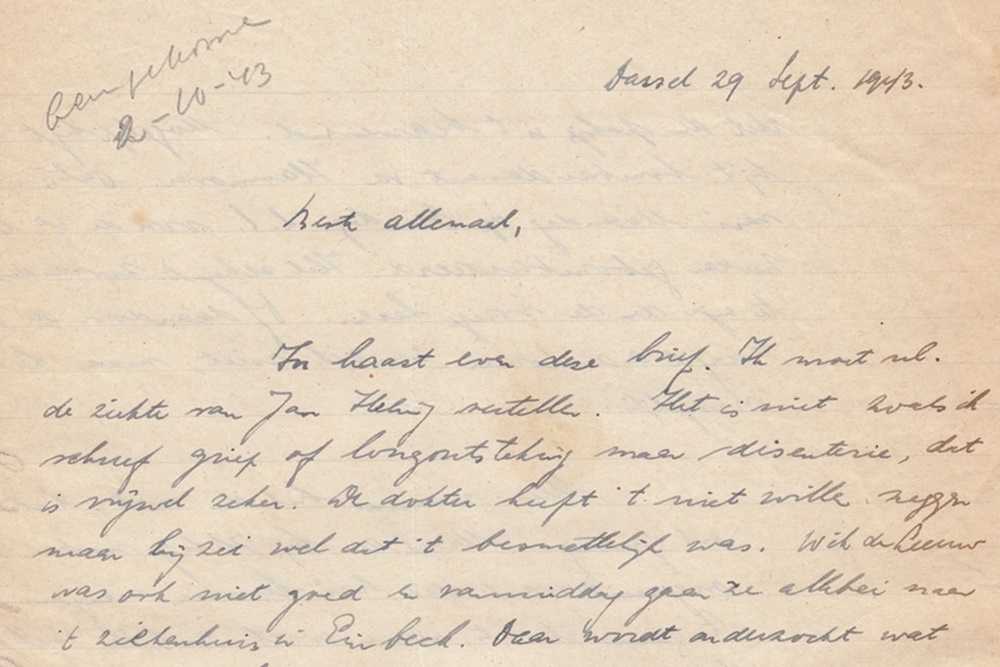 aangekomen
2-10-'43
Dassel 29 Sept. 1943.
Beste allemaal,
In haast even deze brief. Ik moet nl.
de ziekte van Jan vertellen. Het is niet zoals ik
schreef griep of longontsteking maar disenterie, dat
is vrijwel zeker. De dokter heeft 't niet willen zeggen
maar hij zei wel dat 't besmettelijk was. Wih de Leeuw
was ook niet goed en vanmiddag gaan ze allebei naar
't ziekenhuis in Einbeck. Daar wordt onderzocht wat